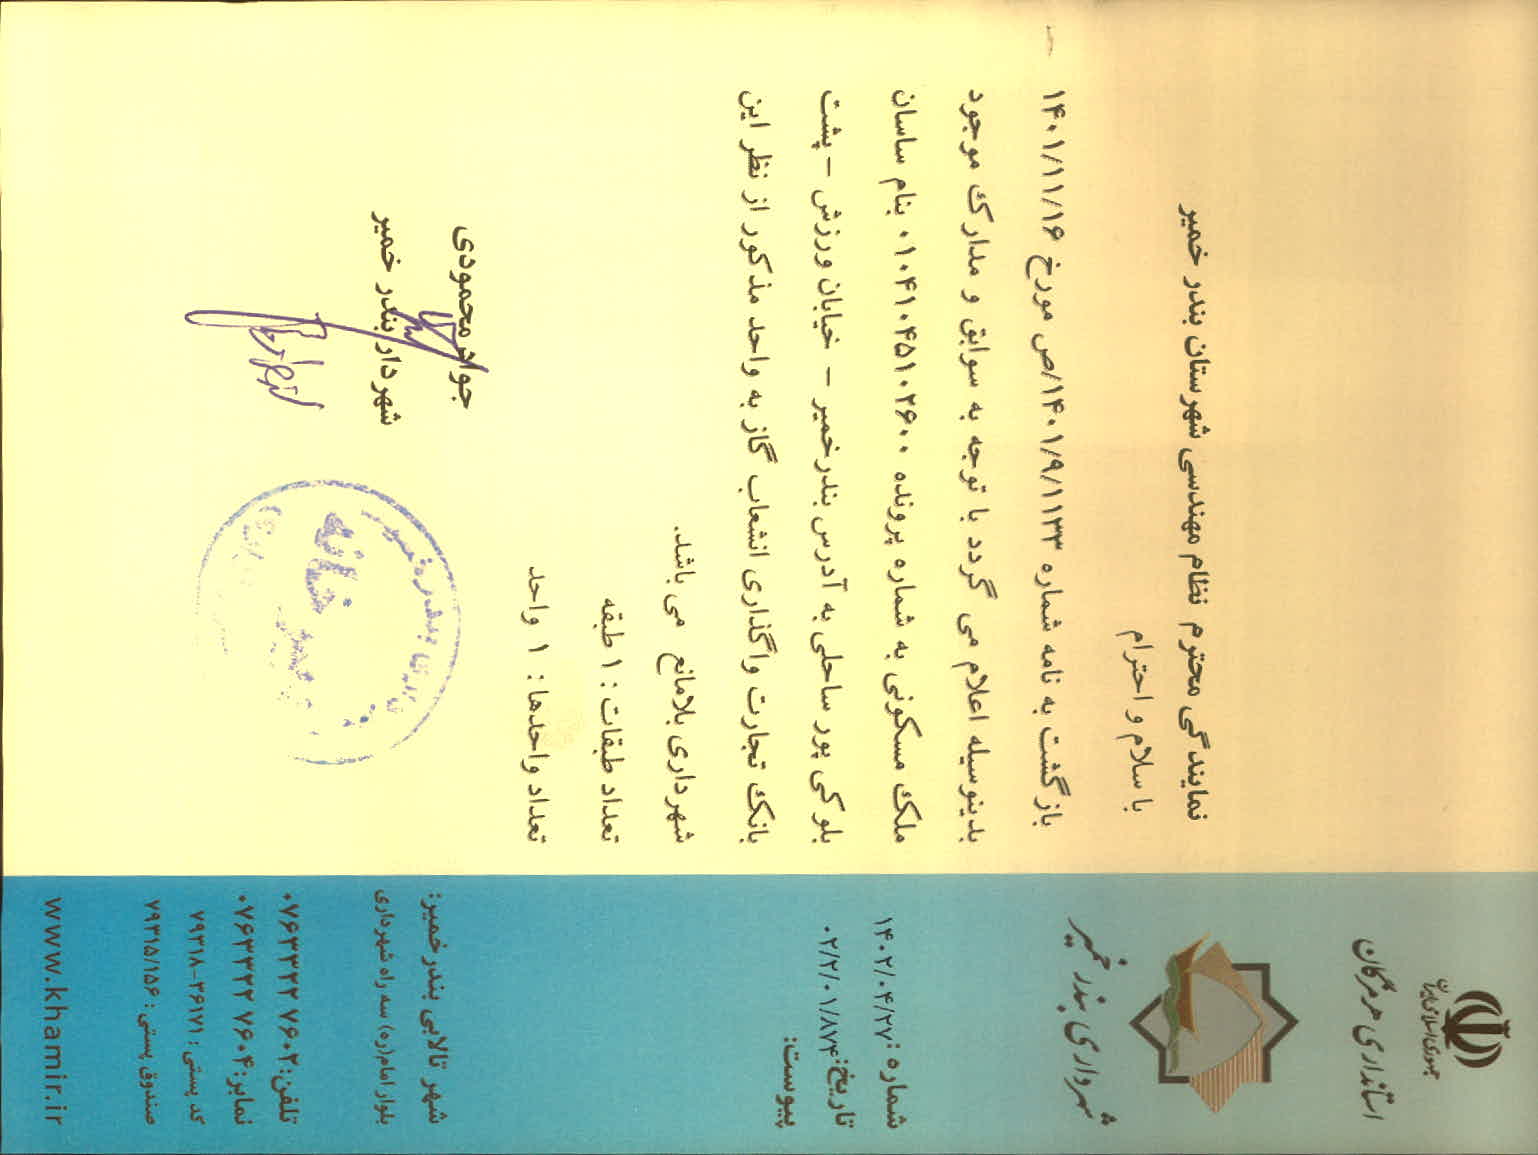 جمهوری اسلامی ایران
استانداری هرمزگان
شهرداری بندر خمیر
شماره: ۱۴۰۲/۰۴/۲۷
تاریخ: ۰۲/۲/۰۱/۸۷۴
پیوست:
نمایندگی محترم نظام مهندسی شهرستان بندر خمیر
با سلام و احترام
بازگشت به نامه شماره ۱۴۰۱/۹/۱۱۳۳/ص مورخ ۱۴۰۱/۱۱/۱۶
بدینوسیله اعلام می گردد با توجه به سوابق و مدارک موجود
ملک مسکونی به شماره پرونده ۰۱۰۴۱۰۴۵۱۰۲۶۰۰ بنام ساسان
بلوکی پور ساحلی به آدرس بندرخمیر – خیابان ورزش – پشت
بانک تجارت واگذاری انشعاب گاز به واحد مذکور از نظر این
شهرداری بلامانع می باشد.
تعداد طبقات: ۱ طبقه
تعداد واحدها: ۱ واحد
جواد محمودی
شهردار بندر خمیر
شهر تالابی بندرخمیر:
بلوار امام(ره) سه راه شهرداری
تلفن: ۰۷۶۳۳۲۲۷۶۰۲
نمابر: ۰۷۶۳۳۲۲۷۶۰۴
کد پستی: ۳۶۱۷۱-۷۹۳۱۸
صندوق پستی: ۷۹۳۱۵/۱۵۶
www.khamir.ir